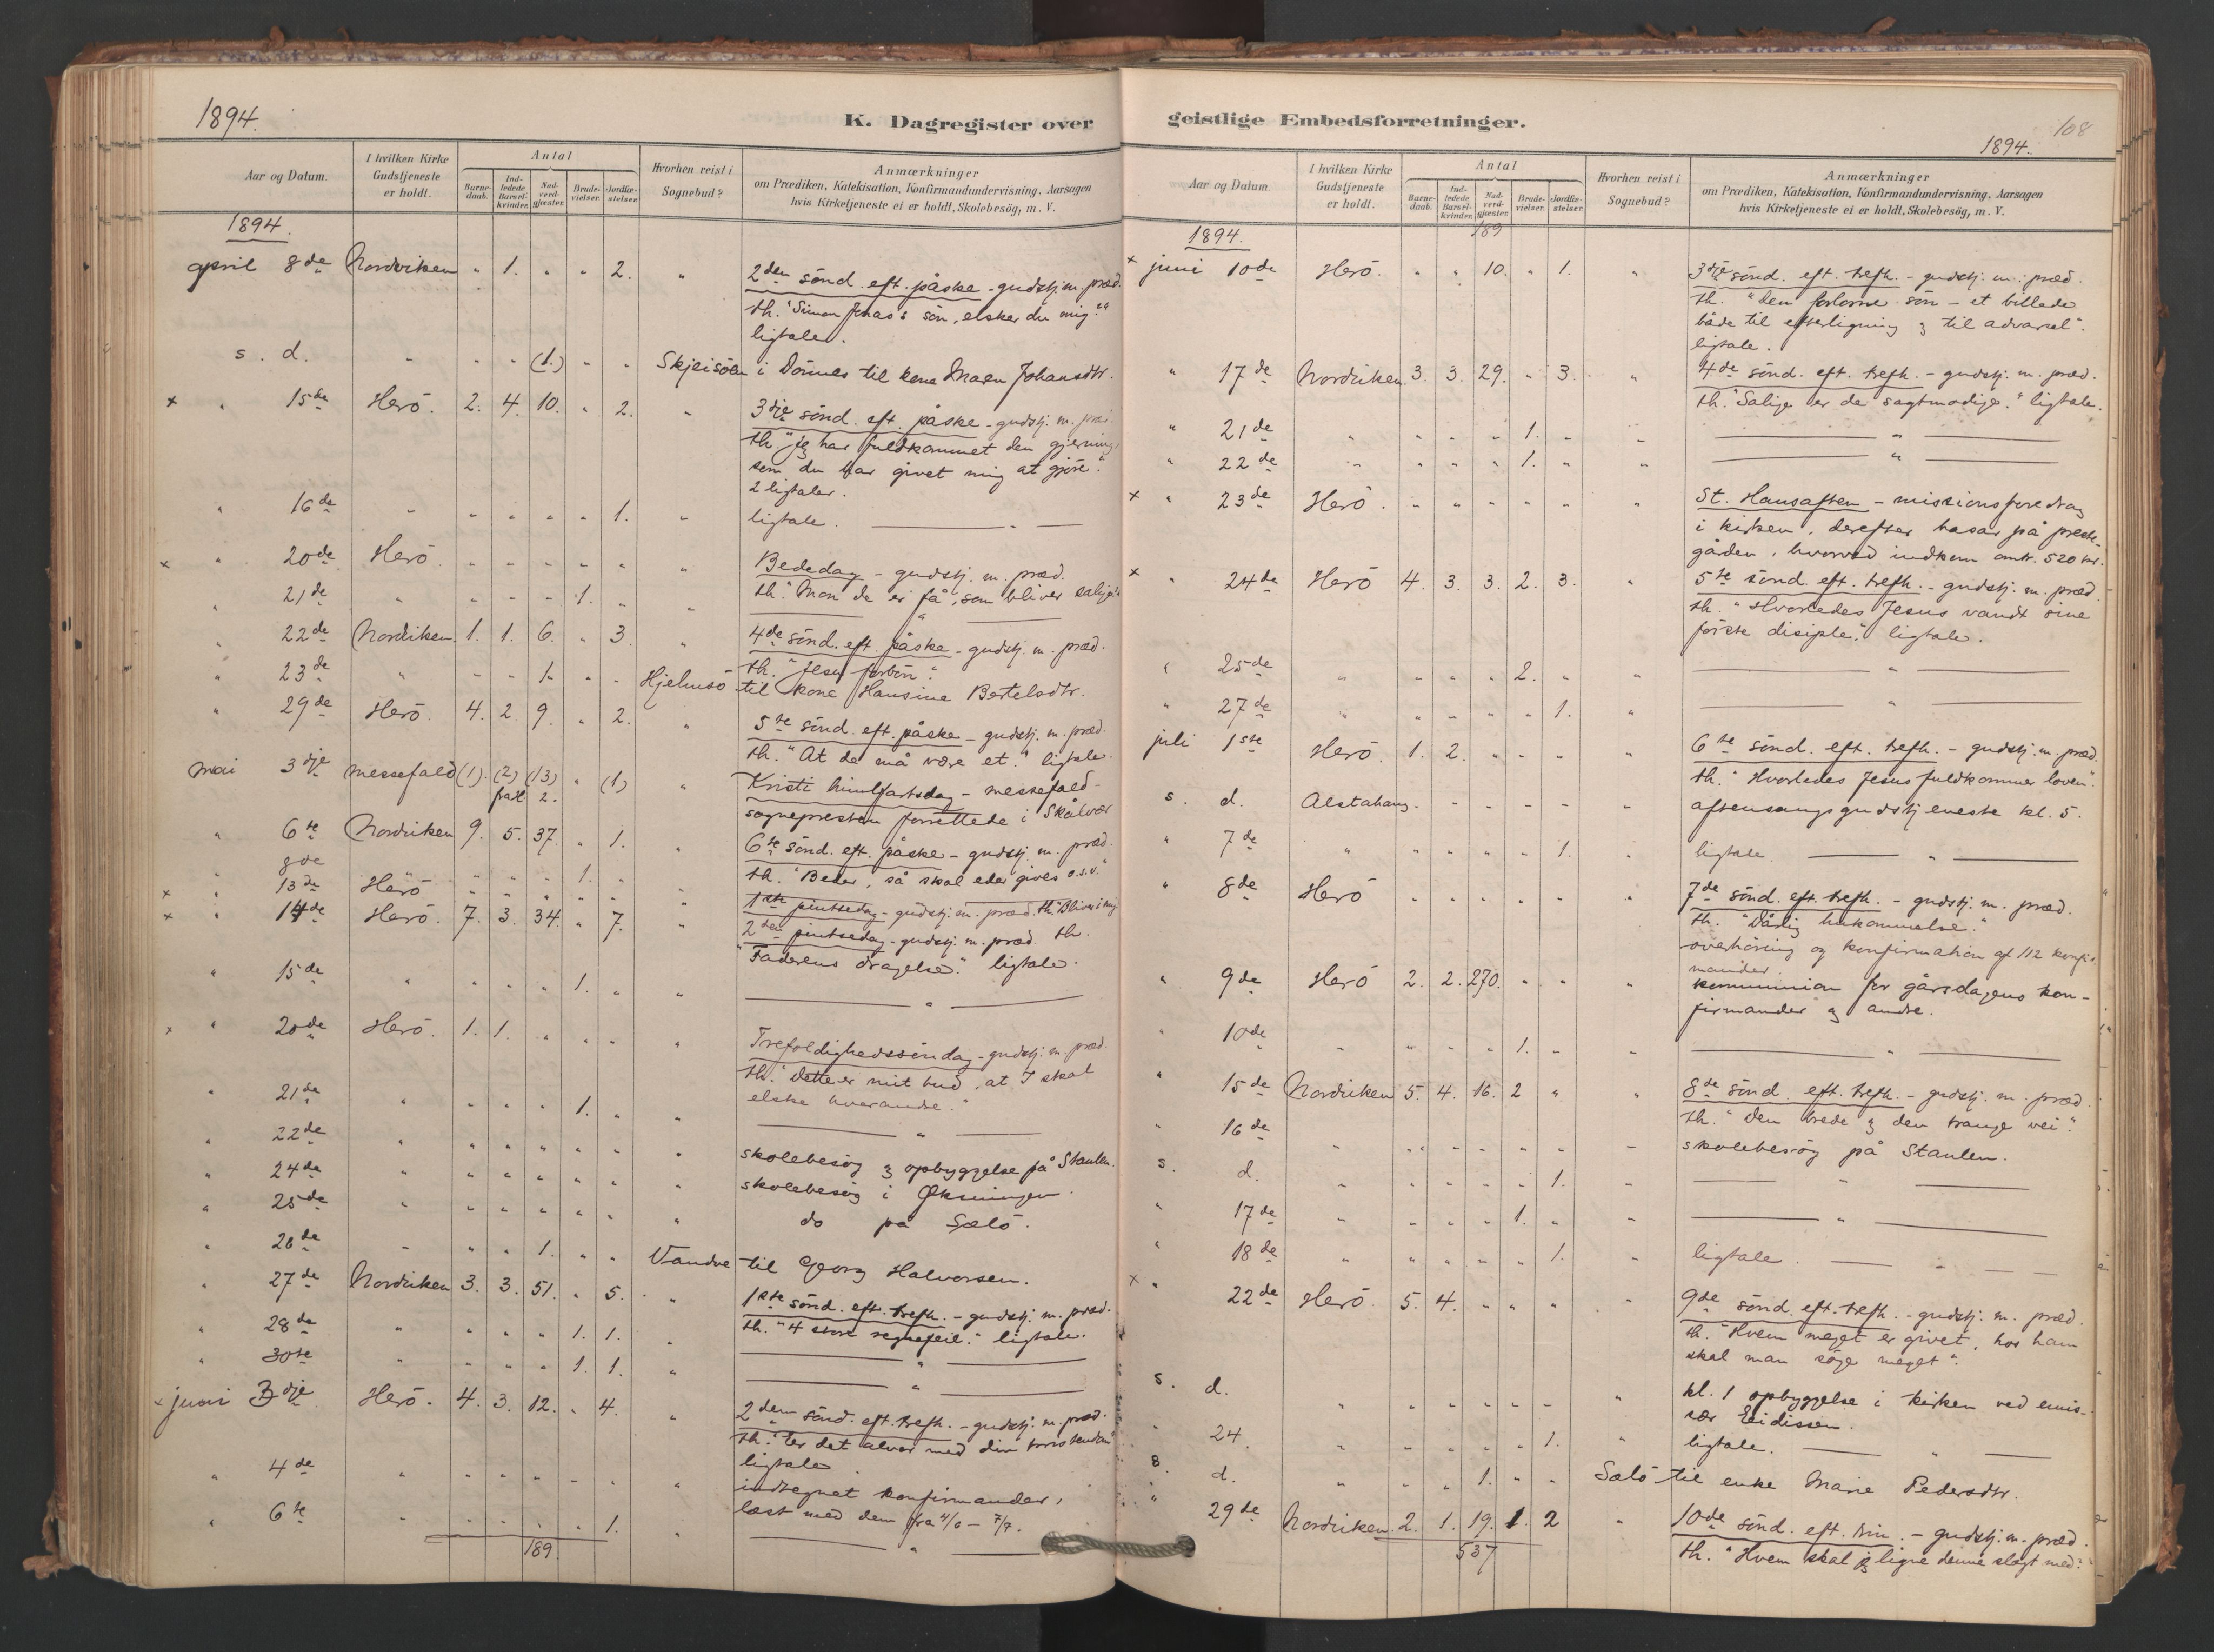 1894.
K. Dagregister over
Aar og Datum.
I hvilken Kirke Gudstjeneste er holdt.
Antal
Barnedaab.
Indledede Barselkvinder.
Nadverdgjæster.
Brudevielser.
Jordfæstelser.
Hvorhen reist i Sognebud?
Anmærkninger
om Prædiken, Katekisation, Konfirmandundervisning, Aarsagen
hvis Kirketjeneste ei er holdt, Skolebesög, m. V.
1894.
april 8de Nordviken " 1. " " 2. " 2den sönd. eft. påske - gudstj. m. præd.
th. "Simon Jonas's sön, elsker du mig?"
ligtale.
s. d. " " " (1.) " " Skjeisöen i Dönnes til kone Maren Johansdtr.
x " 15de Herö. 2. 4. 10. " 2. " 3dje sönd. eft. påske - gudstj. m. præd
th. "jeg har fuldkommet den gjerning
som du har givet mig at gjöre".
2 ligtaler.
" 16de " " " " " 1. " ligtale. — " —
x " 20de Herö " " " " " " Bededag - gudstj. m. præd.
th. "Mon de er få, som bliver salige"
" 21de " " " " 1. " " — " —
" 22de Nordviken. 1. 1. 6. " 3. " 4de sönd. eft. påske - gudstj. m. præd.
th. "Jesu forbön".
" 23de " " " 1. " " Hjelmsö til kone Hansine Bertelsdtr.
" 29de Herö. 4. 2. 9. " 2. " 5te sönd. eft. påske - gudstj. m. præd.
th. "At de må være et." ligtale.
mai 3dje messefald (1). (2) (13) " (1) " Kristi himlfartsdag - messefald -
2. sognepresten forrettede i Skålvær
" 6te Nordviken 9. 5. 37. " 1. " 6te sönd. eft. påske - gudstj. m. præd.
th. "Beder, så skal eder gives o.s.v."
" 8de " " " 1. "
x " 13de Herö " " " " " " 1ste pintsedag - gudstj. m. præd. th. "Bliver i mig
x " 14de Herö. 7. 3. 34. " 7. " 2den pintsedag - gudstj. m. præd. th.
"Faderens dragelse." ligtale.
" 15de " " " " 1. " " — " —
x " 20de Herö. 1. 1. " " " " Trefoldighedssöndag - gudstj. m. præd.
th. "Dette er mit bud, at I skal
elske hverandre."
" 21de " " " " 1. " " — " —
" 22de " " " " " " " skolebesög og opbyggelse på Staulen.
" 24de " " " " " " " skolebesög i Øksningen.
" 25de " " " " " " " do på Sælö.
" 26de " " " 1. " " Vandve til Georg Halvorsen.
" 27de Nordviken 3. 3. 51. " 5. " 1ste sönd. eft. trefh. - gudstj. m. præd.
th. "4 store regnefeil." ligtale.
" 28de " " " " 1. 1. " — " —
" 30te " " " " 1. 1. " — " —
x juni 3dje Herö. 4. 3. 12. " 4. " 2den sönd. eft. trefh. - gudstj. m. præd.
th. "Er det alvor med din kristendom"
ligtale
" 4de " " " " " " " indtegnet konfirmander,
læst med dem fra 4/6 - 7/7.
" 6te " " " " " 1. " — " —
189.
geistlige Embedsforretninger.
108
1894.
Aar og Datum
I hvilken Kirke Gudstjeneste er holdt.
Antal
Barnedaab.
Indledede Barselkvinder.
Nadverdgjæster.
Brudevielser.
Jordfæstelser.
Hvorhen reist i Sognebud?
Anmærkninger
om Prædiken, Katekisation, Konfirmandundervisning, Aarsagen
hvis Kirketjeneste ei er holdt, Skolebesög, m. V.
1894. 189
x juni 10de Herö. " " 10. " 1. " 3dje sönd. eft. trefh. - gudstj. m. præd.
th. "Den forlorne sön - et billede
både til efterligning og til advarsel".
ligtale.
" 17de Nordviken. 3. 3. 29. " 3. " 4de sönd. eft. trefh. - gudstj. m. præd.
th. "Salige er de sagtmodige." ligtale.
" 21de " " " " 1. " " — " —
" 22de " " " " 1. " " — " —
x " 23de Herö. " " " " " " St. Hansaften - missionsforedrag
i kirken, derefter basar på preste-
gården, hvorved indkom omtr. 520 kr.
x " 24de Herö 4. 3. 3. 2. 3. " 5te sönd. eft. trefh. - gudstj. m. præd.
th. "Hvorledes Jesus vandt sine
förste disiple." ligtale.
" 25de " " " " 2. " " — " —
" 27de " " " " " 1. " — " —
juli 1ste Herö. 1. 2. " " " " 6te sönd. eft. trefh. - gudstj. m. præd.
th. "Hvorledes Jesus fuldkommer loven".
s. d. Alstahaug. " " " " " " aftensangsgudstjeneste kl. 5.
" 7de " " " " " 1. " ligtale. — " —
" 8de Herö " " " " " " 7de sönd. eft. trefh. - gudstj. m. præd.
th. "Dårlig hukommelse."
overhöring og konfirmation af 112 konfir-
mander.
" 9de Herö 2. 2. 270. " " " kommunion for gårsdagens kon-
firmander og andre.
" 10de " " " " 1. " " — " —
" 15de Nordviken 5. 4. 16. 2 " " 8de sönd. eft. trefh. - gudstj. m. præd.
th. "den brede og den trange vei".
" 16de " " " " " " " skolebesög på Staulen.
s. d. " " " " " 1. " — " —
" 17de " " " " 1. " " — " —
" 18de " " " " " 1. " ligtale. — " —
x " 22de Herö. 5. 4. " " " " 9de sönd. eft. trefh. - gudstj. m. præd.
th. "Hvem meget er givet, hos ham
skal man söge meget".
s. d. " " " " " " " kl. 1 opbyggelse i kirken ved emis-
sær Eidissen.
" 24. " " " " " 1. " ligtale. — " —
s. d. " " " 1. " " Sælö til enke Marie Pedersdtr.
" 29de Nordviken. 2. 1. 19. 1. 2 " 10de sönd. eft. trin. - gudstj. m. præd.
th. "Hvem skal jeg ligne denne slegt med."
537